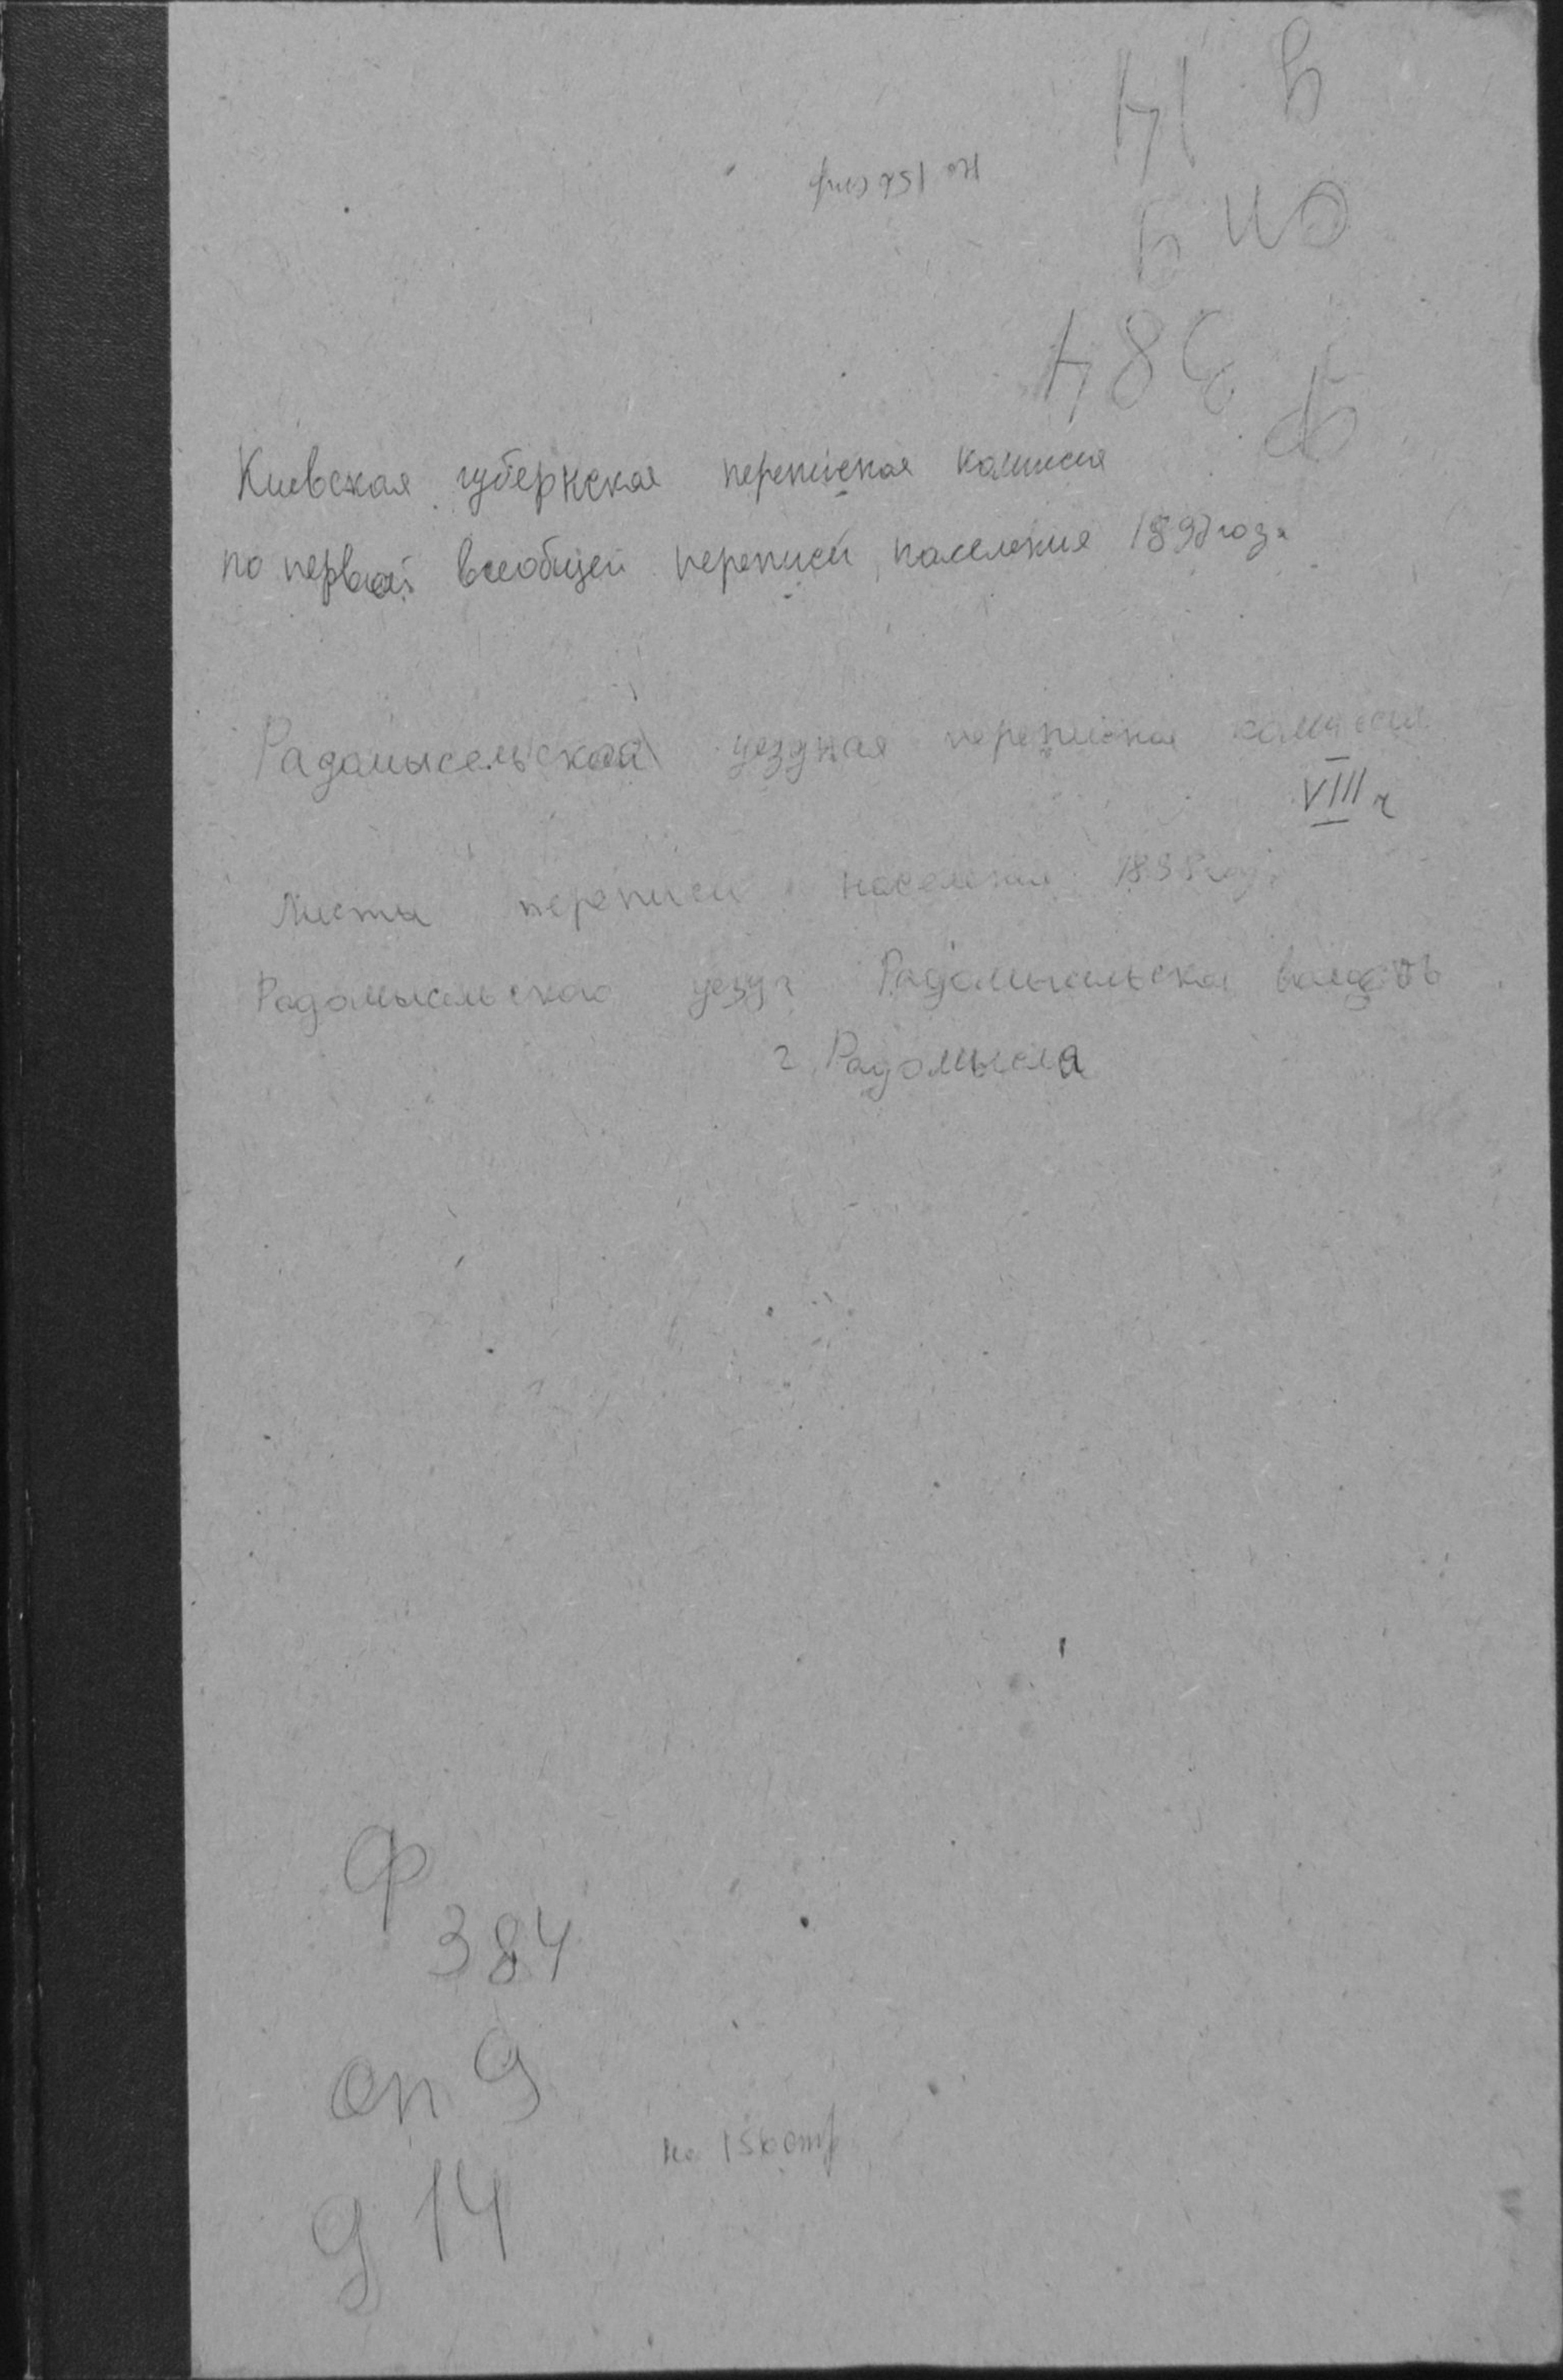 д 14
оп 9
ф 384
на 156 стр
Киевская губернская переписная комиссия
по первой всеобщей переписи населения 1897 года
Радомысельская уездная переписная комиссия
VIII ч
Листы переписи населения
Радомысльского уезда Радомысльская волость
г. Радомысля
Ф
384
оп 9
д 14
на 156 стр